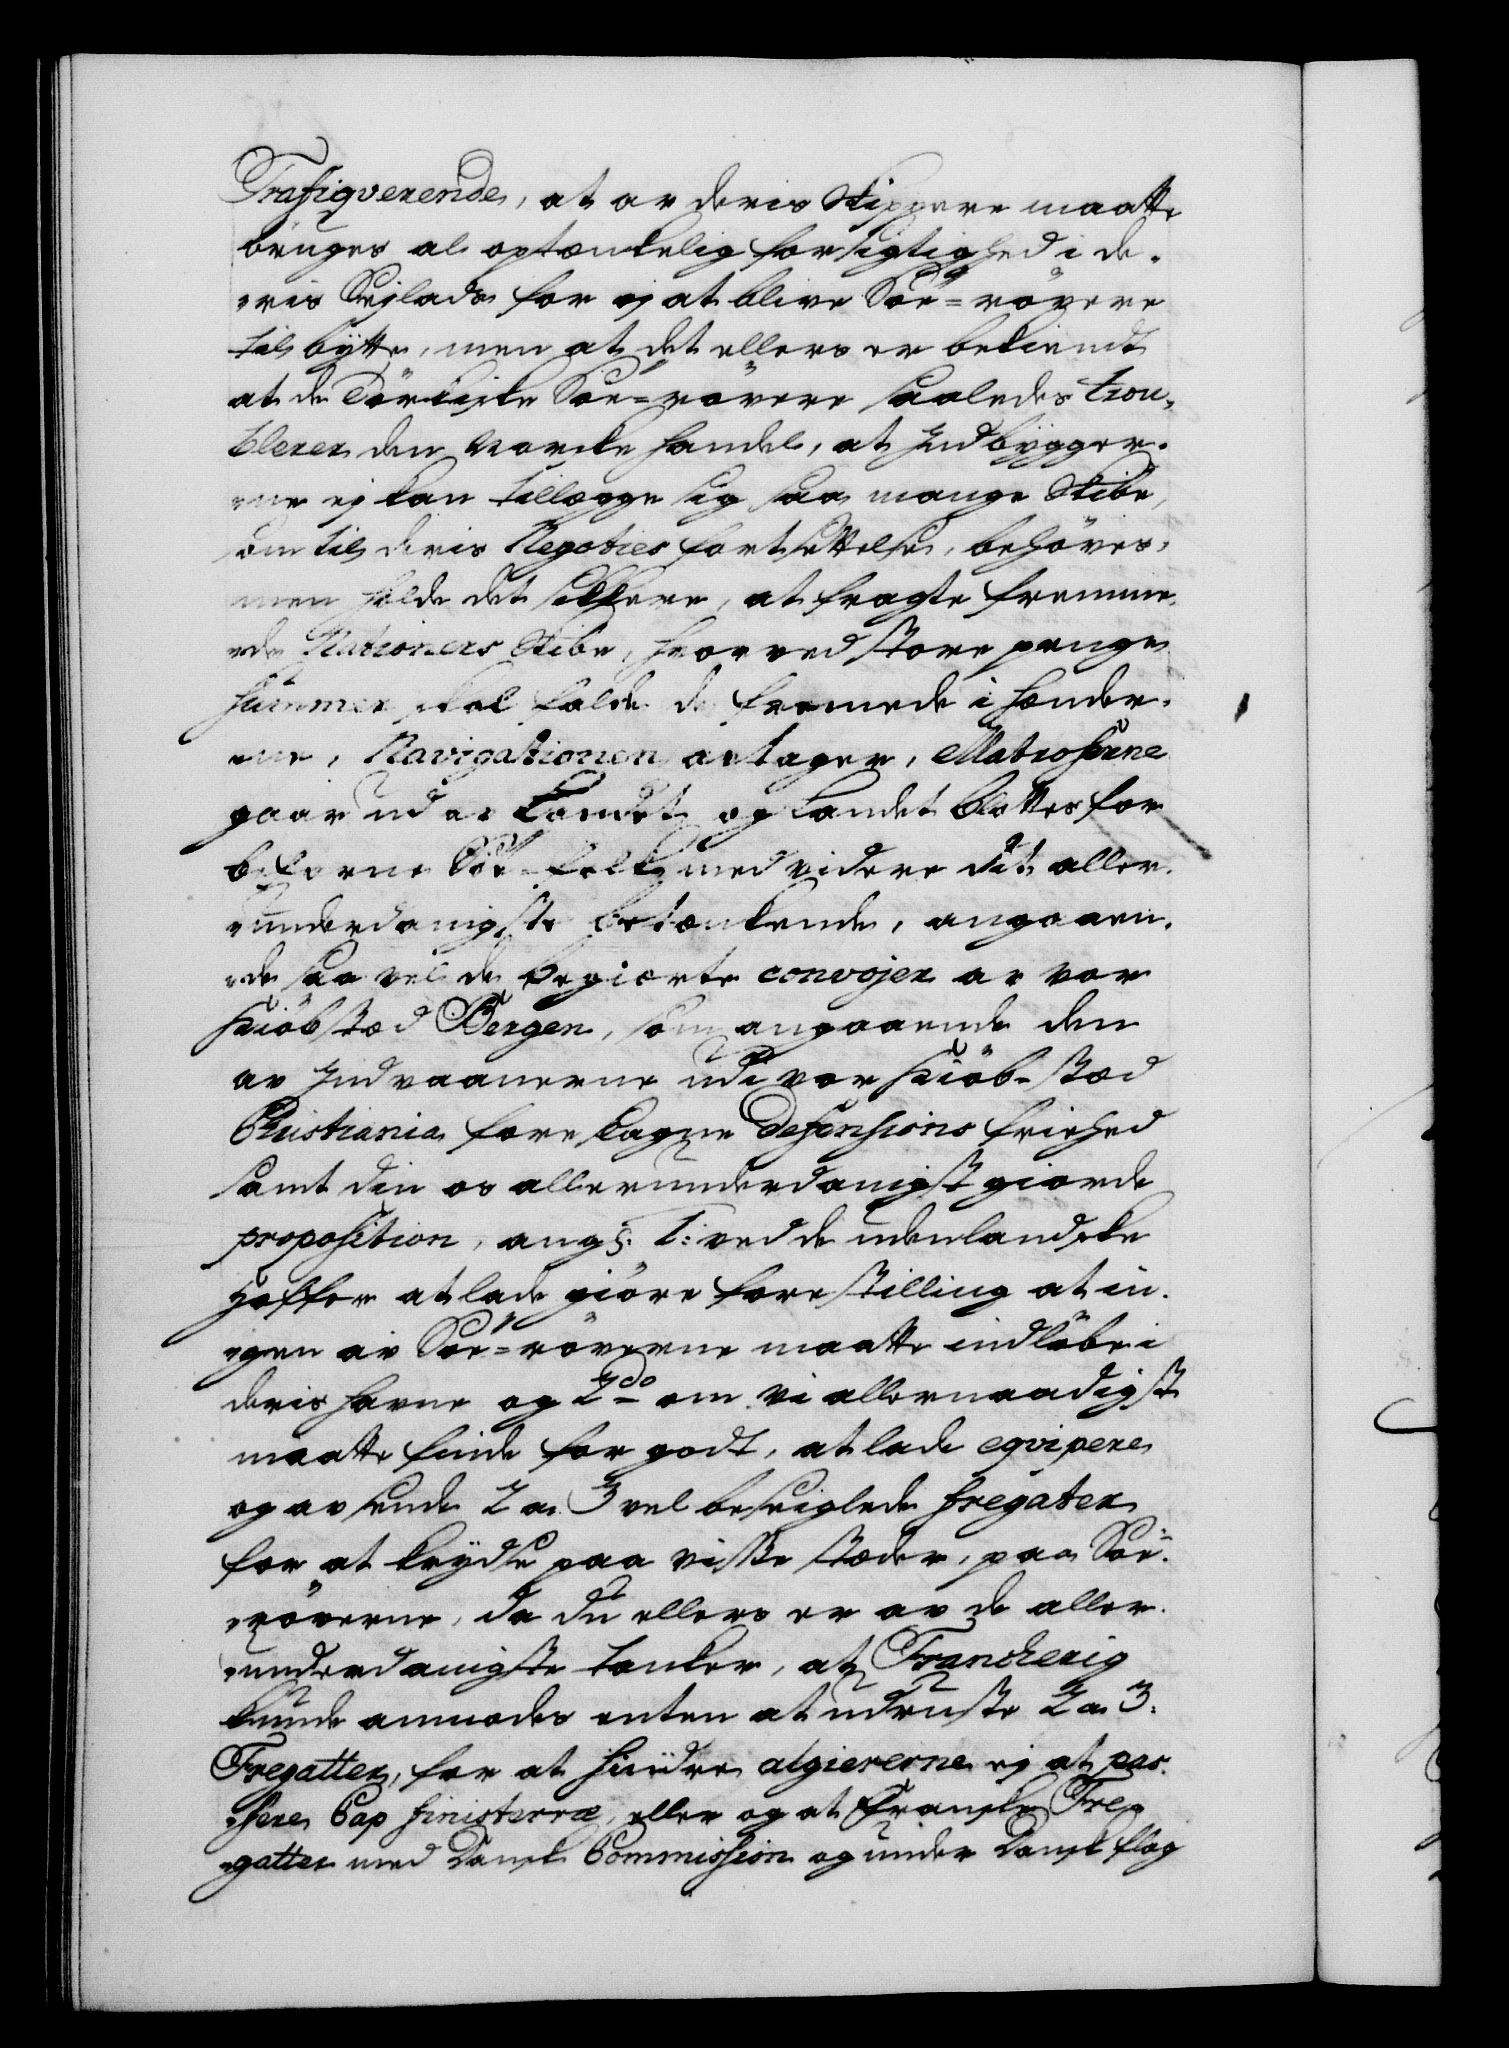 Trafiqverende, at av deris Skippere maatte
bruges al optænkelig forsigtighed i de-
ris Sejlads for ej at blive Søe-røvere
til bytte, men at det ellers er bekiendt
at de Törkiske Søe-røvere saaledes trou-
blerer den Norske handel, at Indbygger-
ne ej kan tillægge sig saa mange Skibe,
som til deris Negoties fortsættelse, behöves,
men holde det sikkere, at fragte fremme-
de Nationers Skibe, hvorved store penge
Summer skal falde de fremmede i hænder-
ne, Navigationen avtager, Matroserne
gaar ud av Landet og Landet blottes for
befarne Søe-folk med videre dit aller-
underdanigste betænkende, angaaen-
de saa vel de begierte convojer av vor
Kiöbstæd Bergen, som angaaende den
av Indvaanerne udi vor Kiöb-stæd
Christiania foreslagne Defensions frihed
samt din os allerunderdanigst giorde
proposition, ang: 1: ved de udenlandske
Hoffer at lade giöre forestilling at in-
gen av Søe-røverne maatte indlöbe i
deris havne og 2do om vi allernaadigst
maatte finde for godt, at lade eqvipere
og avsende 2 a 3 vel beseiglede fregatter
for at krydse paa visse stæder, paa Søe-
röverne, da du ellers er av de aller-
underdanigste tanker, at Franckerig
kunde anmodes enten at udruste 2 a 3
Fregatter, for at hindre algiererne ej at pas-
sere Cap finisterræ, eller og at Franske Fre-
gatter med Dansk Commission og under Dansk flag